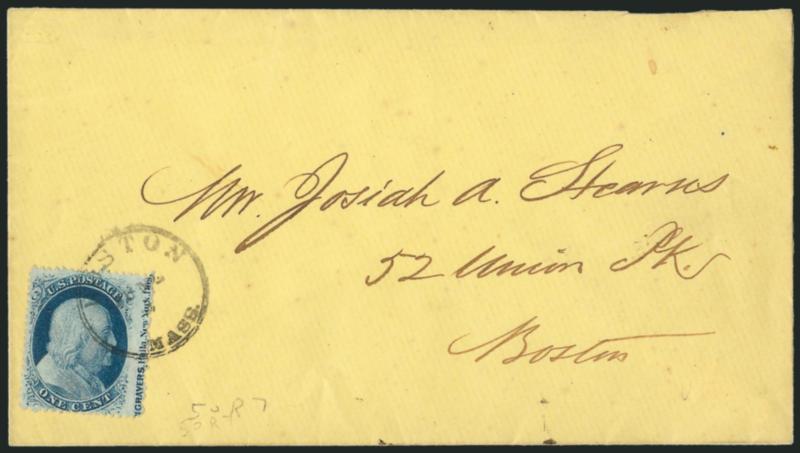 Mr. Josiah A. Stearns
52 Union Pk.
Boston
STON
MASS.
U.S. POSTAGE
ONE CENT
GRAVERS, Phila, New York,
50R7
50R